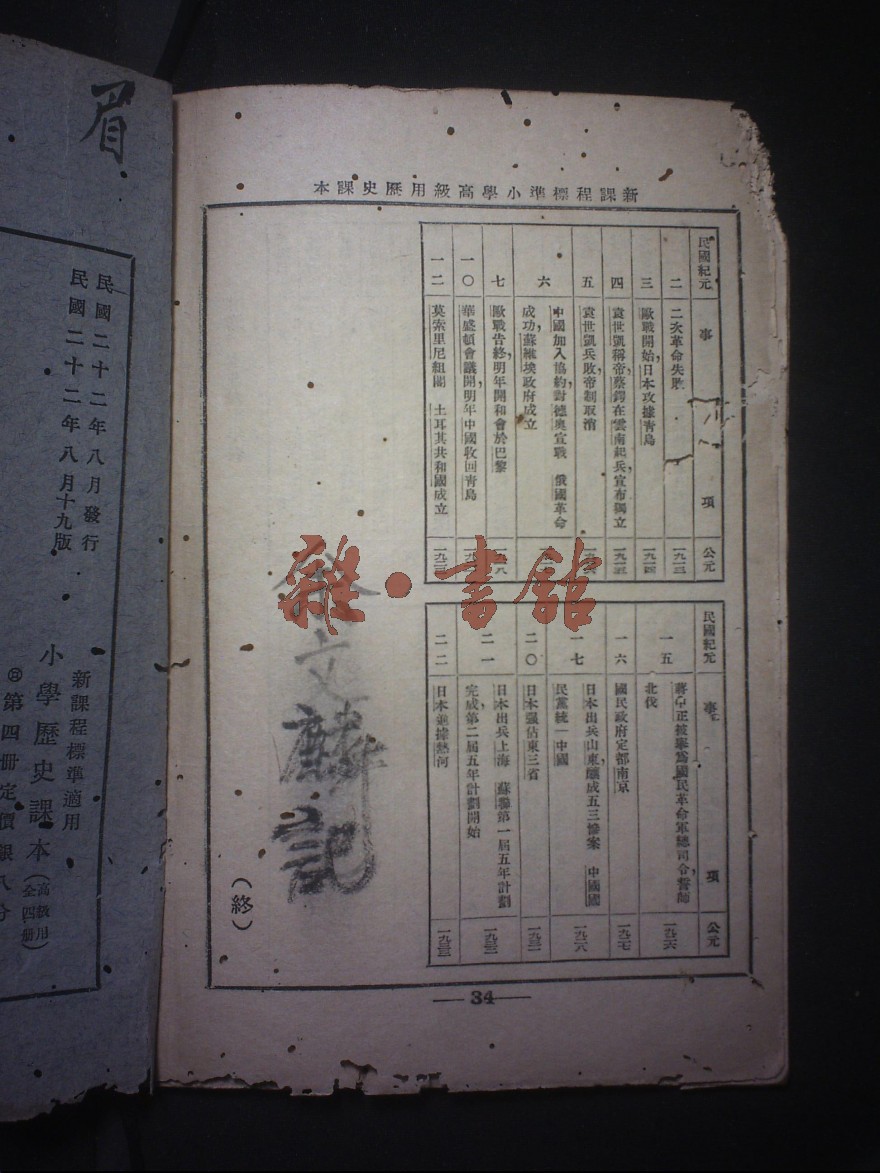 新課程標準小學高級用歷史課本
民國紀元 事 項 公元
二 二次革命失敗 一九一三
三 歐戰開始,日本攻據青島 一九一四
四 袁世凱稱帝,蔡鍔在雲南起兵,宣布獨立 一九一五
五 袁世凱兵敗,帝制取消
六 中國加入協約,對德奧宣戰 俄國革命
成功,蘇維埃政府成立
七 歐戰告終,明年開和會於巴黎
一〇 華盛頓會議開,明年中國收回青島
一二 莫索里尼組閣 土耳其共和國成立 一九二三
民國紀元 事 項 公元
一五 蔣中正被舉爲國民革命軍總司令,誓師
北伐 一九二六
一六 國民政府定都南京 一九二七
一七 日本出兵山東,釀成五三慘案 中國國
民黨統一中國 一九二八
二〇 日本强佔東三省 一九三一
二一 日本出兵上海 蘇聯第一屆五年計劃
完成,第二屆五年計劃開始 一九三二
二二 日本進據熱河 一九三三
徐文麟記
(終)
34
雜·書館
眉
民國二十二年八月發行
民國二十二年八月十九版
新課程標準適用
小學歷史課本(高級用 全四册)
第四册定價銀八分